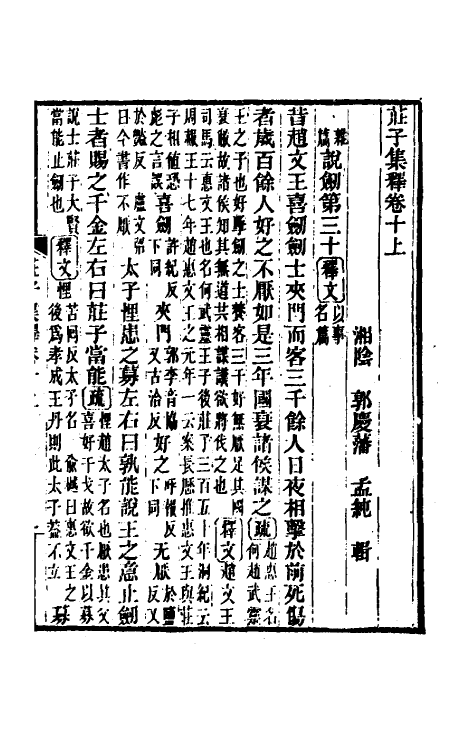 莊子集釋卷十上
湘陰 郭慶藩 孟純 輯
雜篇說劍第三十釋文以事名篇
昔趙文王喜劍劍士夾門而客三千餘人日夜相擊於前死傷
者歲百餘人好之不厭如是三年國衰諸侯謀之疏趙惠王名何趙武靈
王之子也好擊劍之士養客三千好無厭足其國衰敝故諸侯知其無道共相謀議欲將伐之也釋文趙文王
司馬云惠文王也名何武靈王子後莊子三百五十年洞紀云周赧王十七年趙惠文王之元年一云案長歷推惠文王與莊
子相值恐彪之言誤喜劍許紀反下同夾門郭李音協又古洽反好之呼報反下同無厭於鹽反又
於豔反盧文弨曰今書作不厭太子悝患之募左右曰孰能說王之意止劍
士者賜之千金左右曰莊子當能疏悝趙太子名也厭患其父喜好干戈故欲千金以募
說士莊子大賢當能止劍也釋文悝苦回反太子名俞樾曰惠文王之後爲孝成王丹則此太子蓋不立募